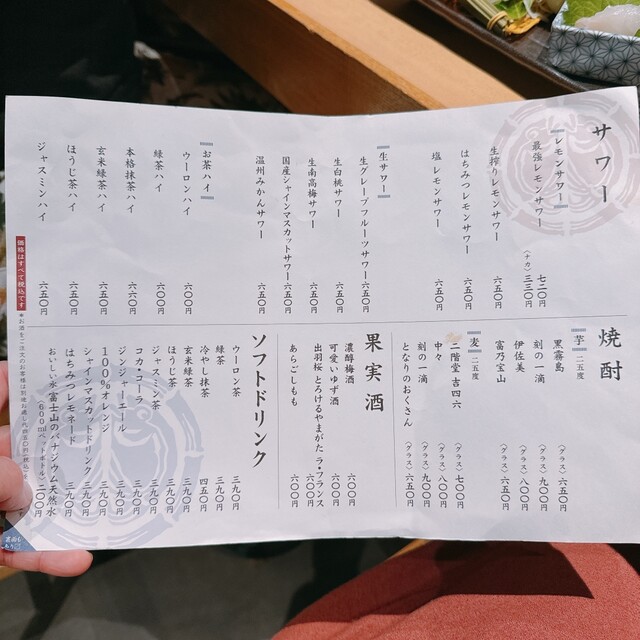 サワー
レモンサワー
最強レモンサワー 七二〇円
(ナカ) 三三〇円
生搾りレモンサワー 六五〇円
はちみつレモンサワー 六五〇円
塩レモンサワー 六五〇円
生サワー
生グレープフルーツサワー 六五〇円
生白桃サワー 六五〇円
生南高梅サワー 六五〇円
国産シャインマスカットサワー 六五〇円
温州みかんサワー 六五〇円
お茶ハイ
ウーロンハイ 六〇〇円
緑茶ハイ 六〇〇円
本格抹茶ハイ 六六〇円
玄米緑茶ハイ 六五〇円
ほうじ茶ハイ 六五〇円
ジャスミンハイ 六五〇円
焼酎
芋 二五度
黒霧島 (グラス) 六五〇円
刻の一滴 (グラス) 九〇〇円
伊佐美 (グラス) 八〇〇円
富乃宝山 (グラス) 六五〇円
麦 二五度
二階堂吉四六 (グラス) 七〇〇円
中々 (グラス) 八〇〇円
刻の一滴 (グラス) 九〇〇円
となりのおくさん (グラス) 六五〇円
果実酒
濃醇梅酒 六〇〇円
可愛いゆず酒 六〇〇円
出羽桜 とろけるやまがた ラ・フランス 六〇〇円
あらごしもも 六〇〇円
ソフトドリンク
ウーロン茶 三九〇円
緑茶 三九〇円
冷やし抹茶 四五〇円
玄米緑茶 三九〇円
ほうじ茶 三九〇円
ジャスミン茶 三九〇円
コカ・コーラ 三九〇円
ジンジャーエール 三九〇円
100%オレンジ 三九〇円
シャインマスカットドリンク 三九〇円
はちみつレモネード 三九〇円
おいしい水 富士山のバナジウム天然水
(600mlペットボトル) 二〇〇円
価格はすべて税込です